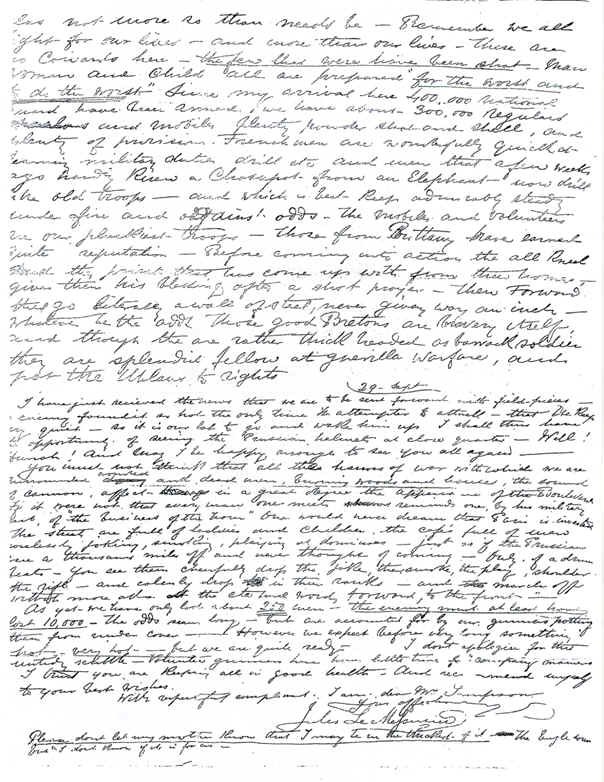 was not more so than needs be — Remember we all
fight for our lives — and more than our lives — there are
no Cowards here — the few that were have been shot — Man
Woman and Child all are prepared "for the worst and
to do the worst" Since my arrival here 400,000 national
Guard have been armed, we have about 300,000 regulars
and mobiles. Plenty powder shot and shell, and
plenty of provision. Frenchmen are wonderfully quick at
learning military duties drill etc and men that a few weeks
ago hardly knew a Chassepot from an Elephant — now drill
like old troops — and which is best keep admirably steady
under fire and odds — the mobiles and volunteers
are our pluckiest troops — Those from Brittany have earned
quite reputation — Before coming into action the all kneel
the priest that has come up with from their homes
gives them his blessing after a short prayer — then Forward.
they go literally a wall of steel, never giving way an inch —
whatever be the odds Those good Bretons are bravery itself,
and though the are rather thick headed as barrack soldier
they are splendid fellow at guerilla warfare, and
put the Uhlans to rights
29 — Sept
I have just received the news that we are to be sent forward with field pieces —
enemy found it so hot the only time he attempted to attack — that he keep
very quiet — so it is our lot to go and wake him up I shall then have
opportunity of seeing the Prussian helmets at close quarters — Well!
And may I be happy enough to see you all again —
You must not think that all the horrors of war with which we are
surrounded and dead men, burning woods and houses, the sound
of cannon, affect in a great degree the appearance of the Boulevards
if it were not that every man one meets reminds one, by his military
of the business of the hour One would never dream that Paris is invested
the street are full of ladies and children, the cafés full of men
joking, smoking, playing at dominoes — just as if the Prussian
were a thousand mile off and never thought of coming — But if a drum
beats — You see them carefully drop the joke, the smoke, the play, shoulder
the rifle — and calmly drop in their ranks — and march off
without more ado at the word, Forward, to the front —
As yet we have only lost about 250 men — the enemy must at least have
lost 10,000 — the odds seem long — but are accounted for by our gunners potting
them from under cover — However we expect before very long something
hot, very hot — but we are quite ready — I don't apologise for this
— Volunteer gunners have
I trust you are keeping all in good health — And recommend myself
to your best wishes.
With respectful compliment. I am, dear Mr Simpson
Yours affectionately
Jules
Please don't let my mother know that I may be in the thickest of it —
but I don't know if